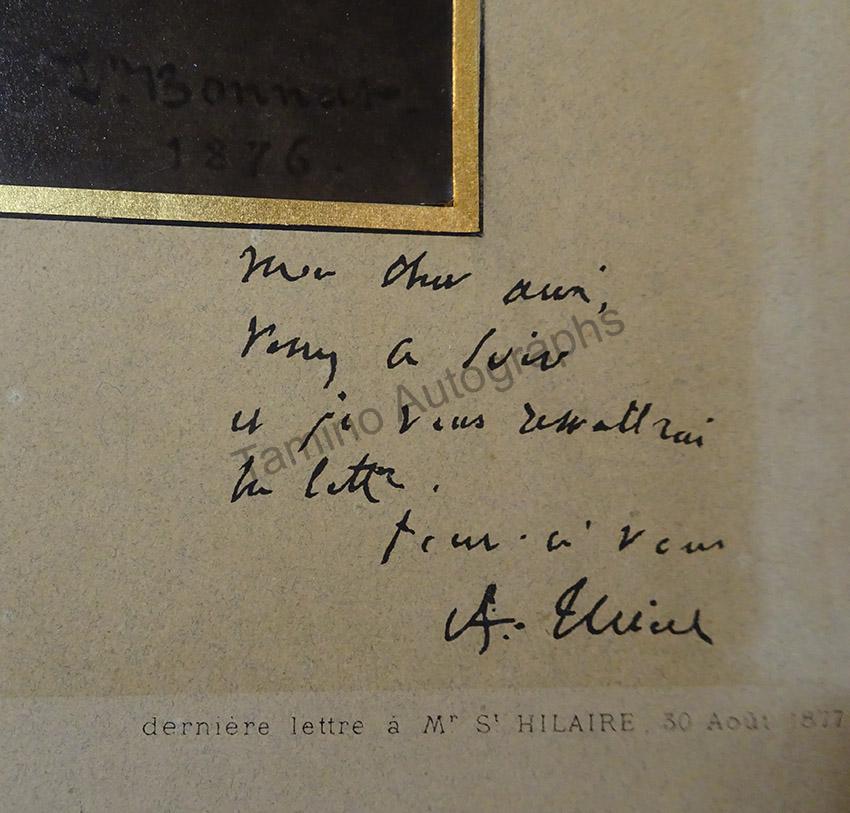 Ln. Bonnat.
1876.
Mon cher ami,
Venez ce soir
et je vous remettrai
la lettre.
tout à vous
A. Thiers
Tamino Autographs
dernière lettre à Mr St HILAIRE, 30 Août 1877